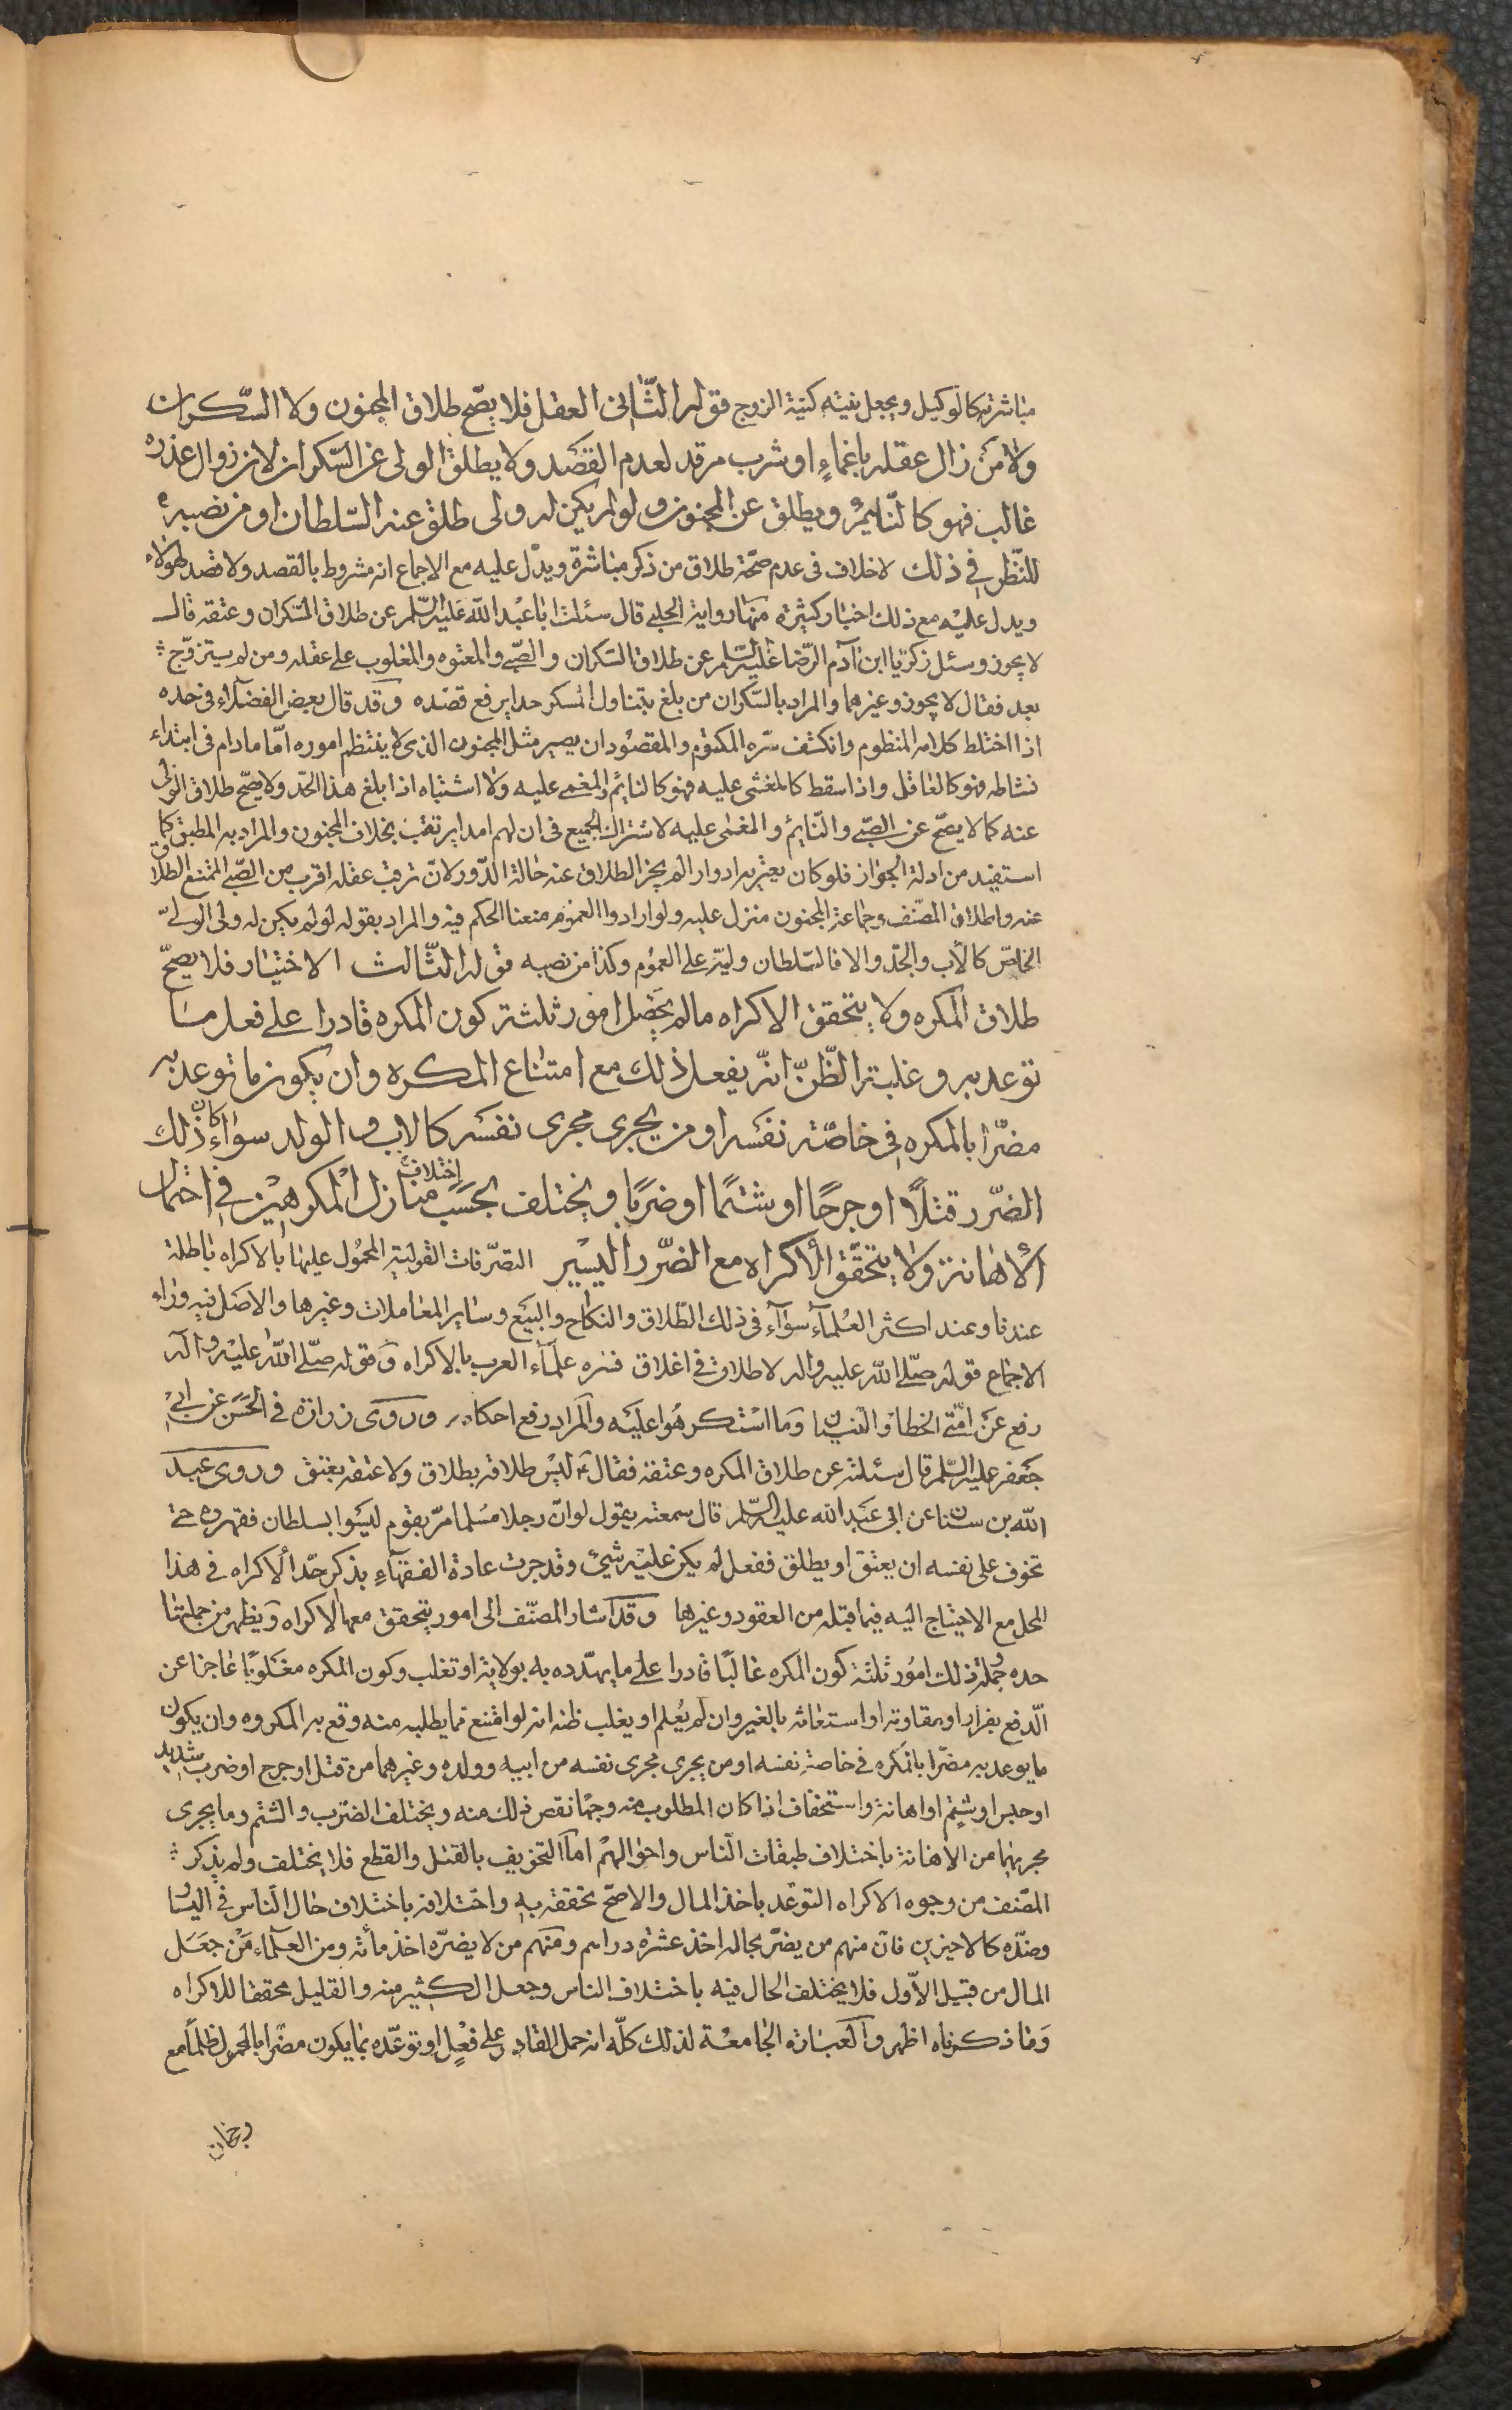 مباشرته كالوكيل ويجعل نيته كنية الزوج قوله الثّانى العقل فلا يصّح طلاق المجنون ولا السّكران
ولا من زال عقله باغماءٍ او شرب مرقد لعدم القصد ولا يطلق الولى عن السّكران لان زوال عذره
غالب فهو كالنّايم ويطلق عن المجنون ولو لم يكن له ولى طلق عنه السّلطان او من نصبه
للنّظر فى ذلك لا خلاف فى عدم صحّة طلاق من ذكر مباشرة ويدّل عليه مع الاجماع انه مشروط بالقصد ولا قصد لهؤلاء
ويدل عليه مع ذلك اخبار كثيرة منها رواية الحلبى قال سئلت ابا عبد الله عليه السّلم عن طلاق السّكران وعتقه قال
لا يجوز وسئل زكريا ابن آدم الرّضا عليه السّلم عن طلاق السّكران والصّبى والمعتوه والمغلوب على عقله ومن لم يتزوّج
بعد فقال لا يجوز وغيرهما والمراد بالسّكران من بلغ بتناول المسكر حدا يرفع قصده وقد قال بعض الفضلاء فى حده
اذا اختلط كلامه المنظوم وانكشف سّره المكتوم والمقصود ان يصير مثل المجنون الذى لا ينتظم اموره امّا مادام فى ابتداء
نشاطه فهو كالعاقل واذا سقط كالمغشى عليه فهو كالنايم والمغمى عليه ولا اشتباه اذا بلغ هذا الحّد ولا يصّح طلاق الولى
عنه كما لا يصّح عن الصّبى والنّايم والمغمى عليه لاشتراك الجميع فى ان لهم امدا يرتقب بخلاف المجنون والمراد به المطبق كما
استفيد من ادلة الجواز فلو كان يعتريه ادوار الم يجز الطلاق عنه حالة الدّور لانّ ترقب عقله اقرب من الصّبى الممتنع الطلاق
عنه واطلاق المصّنف وجماعة المجنون منزل عليه ولو ارادوا العموم منعنا الحكم فيه والمراد بقوله لو لم يكن له ولى الولىّ
الخاصّ كالأب والجدّ والا فالسّلطان وليّه على العموم وكذا من نصبه قوله الثّالث الاختيار فلا يصحّ
طلاق المكره ولا يتحقق الاكراه مالم يحصل امور ثلثة كون المكره قادرا على فعل ما
توعد به وغلبة الظّنّ انّه يفعل ذلك مع امتناع المكره وان يكون ما توعد به
مضّرا بالمكره فى خاصّة نفسه او من يجرى مجرى نفسه كالاب والولد سواءٌ كان ذلك
الضّرر قتلًا او جرحًا او شتمًا او ضربًا ويختلف بحسب اختلاف منازل المكرهين فى احتمال
الأهانة ولا يتحقّق الأكراه مع الضّرر اليسير التصّرفات القولية المحمول عليها بالاكراه باطلة
عندنا وعند اكثر العلمآء سوآء فى ذلك الطّلاق والنكاح والبيع وساير المعاملات وغيرها والاصل فيه وراء
الاجماع قوله صلّى الله عليه واله لا طلاق فى اغلاق فسره علمآء العرب بالاكراه وقوله صلّى الله عليه وآله
رفع عن امّتى الخطا والنسيان وما استكرهوا عليه والمراد رفع احكامه وروى زرارة فى الحسن عن ابى
جعفر عليه السّلم قال سئلته عن طلاق المكره وعتقه فقال ع ليس طلاقه بطلاق ولا عتقه بعتق وروى عبد
الله بن سنان عن ابى عبد الله عليه السّلم قال سمعته يقول لو انّ رجلا مسلما مرّ بقوم ليسوا بسلطان فقهروه حتى
تخوف على نفسه ان يعتق او يطلق ففعل لم يكن عليه شىء وقد جرت عادة الفقهاءِ بذكر حّد الاكراه فى هذا
المحل مع الاحتياج اليه فيما قبله من العقود وغيرها وقد اشار المصنّف الى امور يتحقق معها الاكراه ويظهر من جملتها
حده وجملة ذلك امور ثلثة كون المكره غالبًا قادرا على ما يهدّده به بولاية او تغلب وكون المكره مغلوبًا عاجزا عن
الّدفع بفرار او بمقاومة او استغاثة بالغير وان لم يعلم او يغلب ظنه انه لو امتنع مما يطلبه منه وقع به المكروه وان يكون
ما يوعد به مضّرا بالمكره فى خاصة نفسه او من يجرى مجرى نفسه من ابيه وولده وغيرهما من قتل او جرح او ضرب شديد
او حبس او شتم او اهانة واستخفاف اذا كان المطلوب منه وجها نقص ذلك منه ويختلف الضّرب والشتم وما يجرى
مجريهما من الاهانة باختلاف طبقات النّاس واحوالهم اما التخويف بالقتل والقطع فلا يختلف ولم يذكر
المصّنف من وجوه الاكراه التوعّد باخذ المال والاصّح تحققه به واختلافه باختلاف حال النّاس فى اليسار
وضدّه كالاخيرين فانّ منهم من يضّر بحاله اخذ عشرة دراهم ومنهم من لا يضرّه اخذ مأئة ومن العلمآء من جعل
المال من قبيل الاوّل فلا يختلف الحال فيه باختلاف الناس وجعل الكثير منه والقليل محققا للاكراه
وما ذكرناه اظهر والعبارة الجامعة لذلك كلّه انه حمل القادر على فعلٍ او توعّده بما يكون مضّرا بالمحمول ظلمًا مع